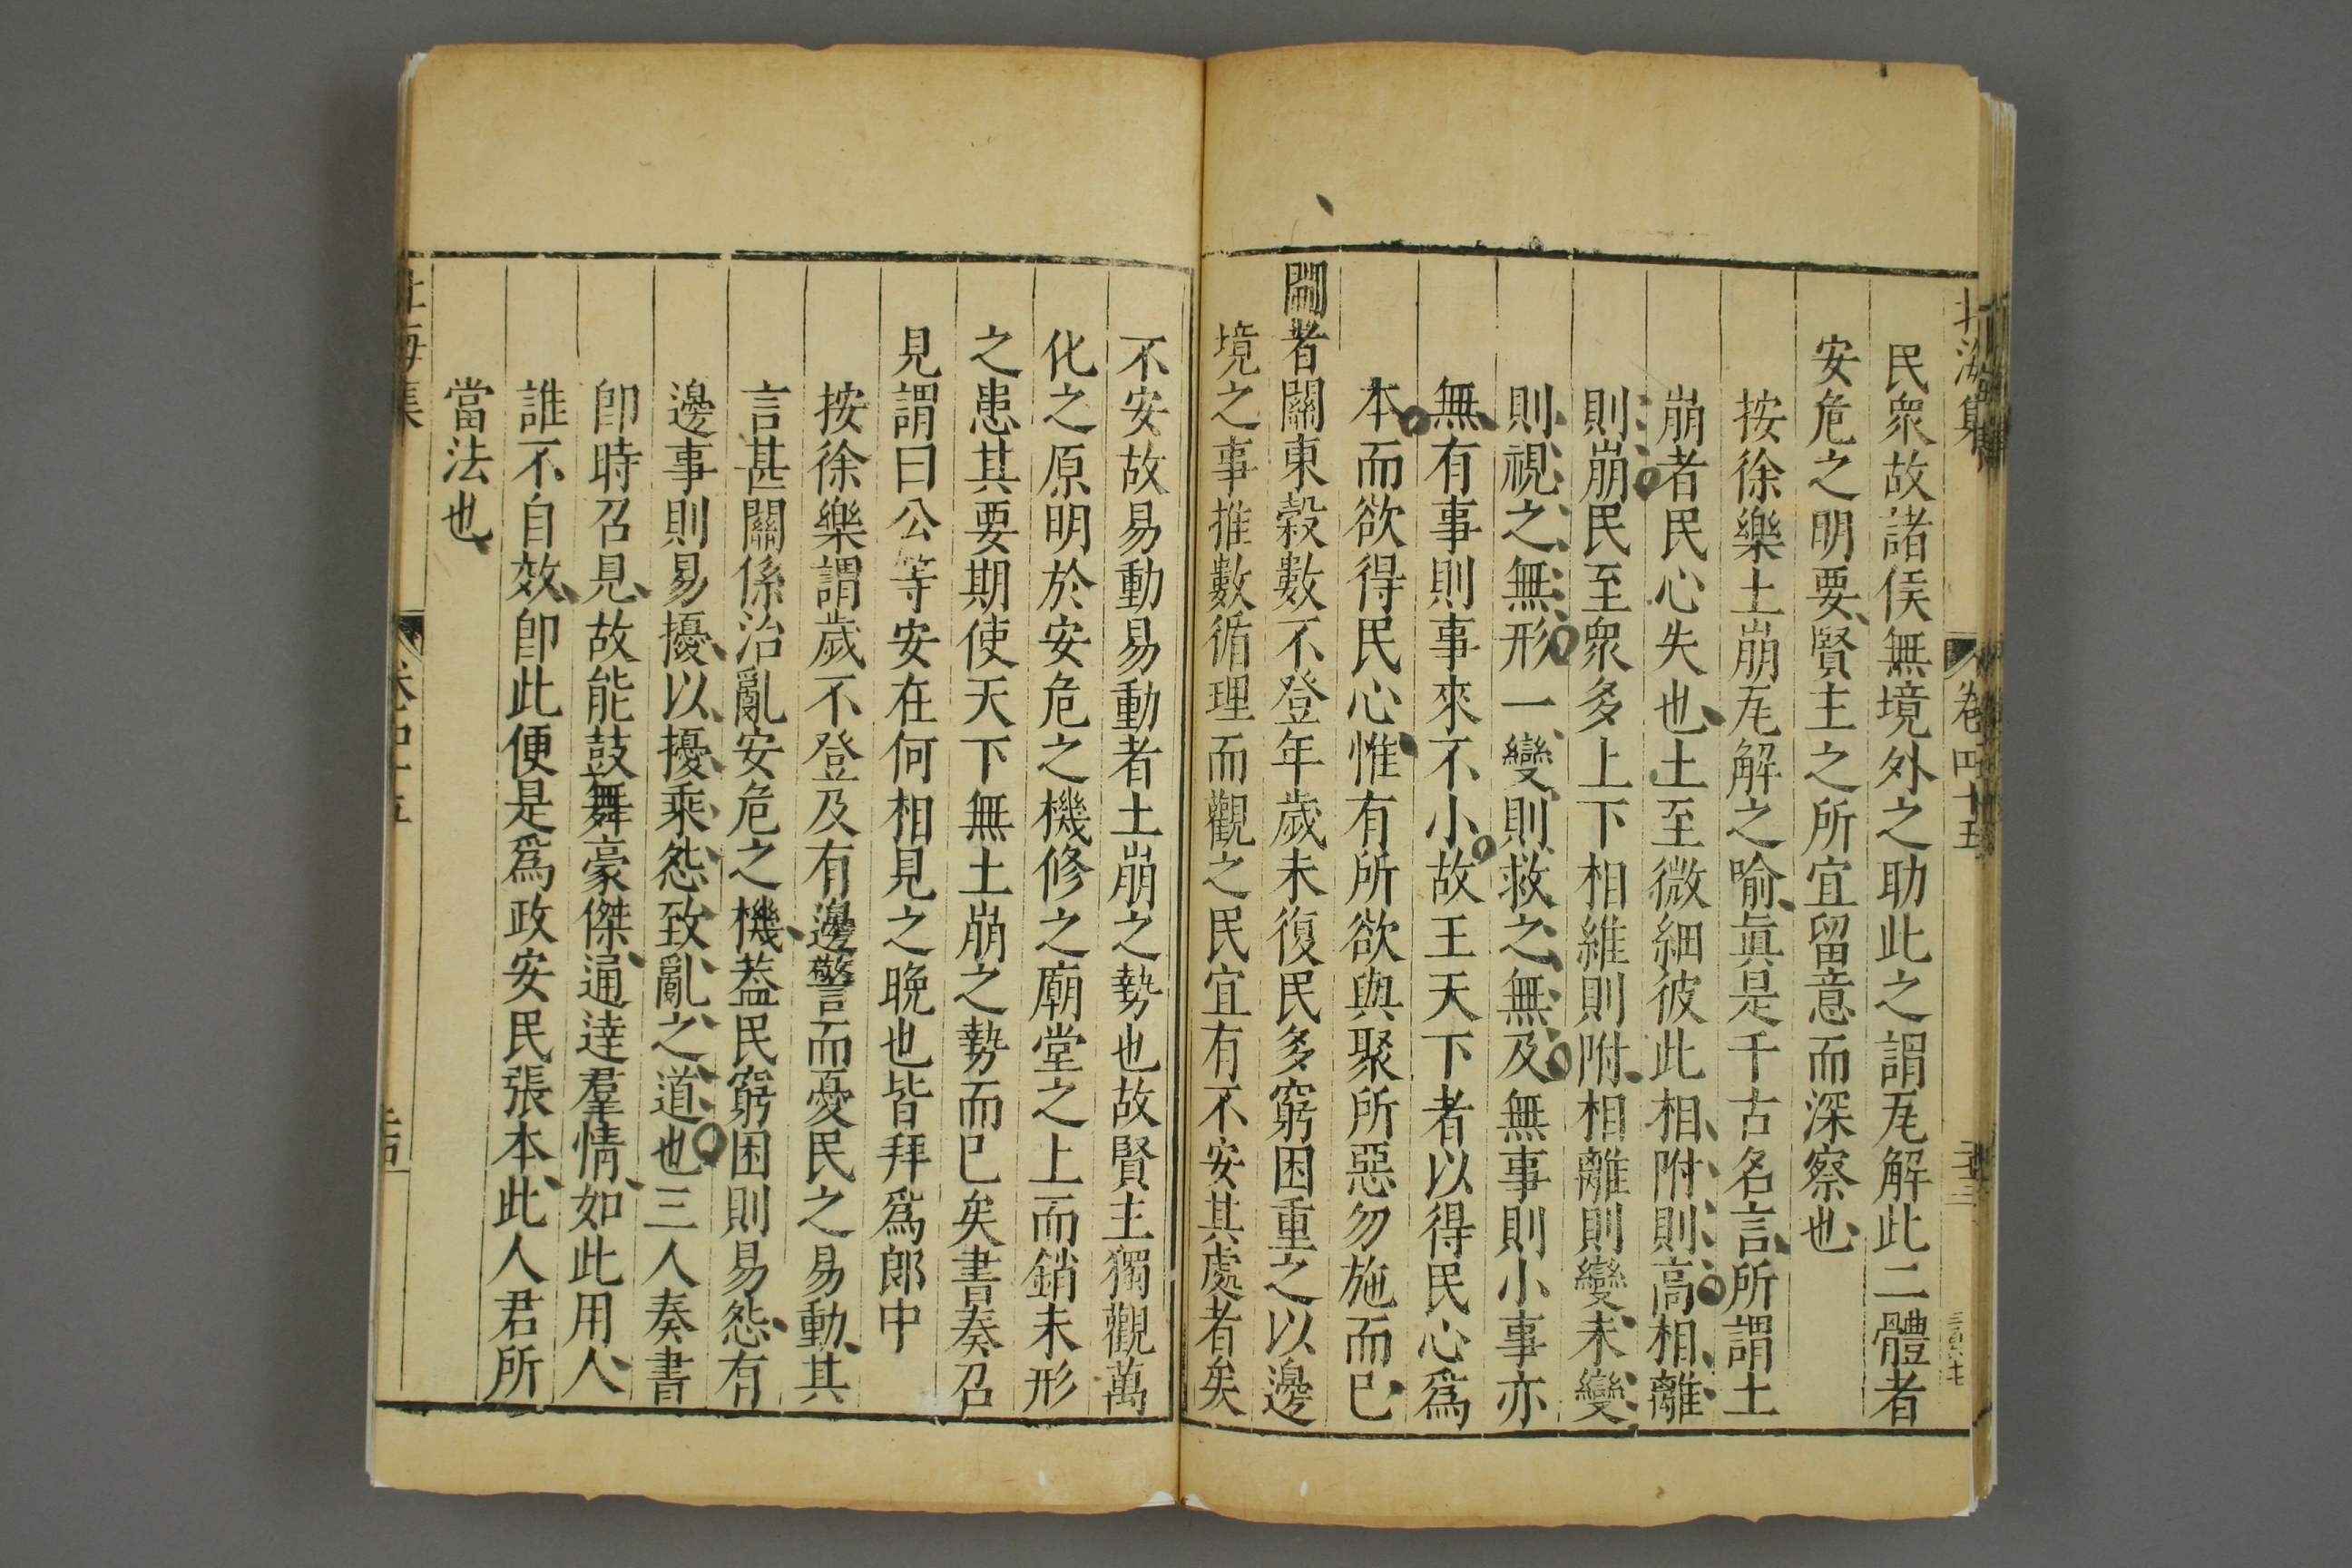 北海集
卷四十五
民衆故諸侯無境外之助此之謂瓦解此二體者
安危之明要賢主之所宜留意而深察也
按徐樂土崩瓦解之喻眞是千古名言所謂土
崩者民心失也土至微細彼此相附則高相離
則崩民至衆多上下相維則附相離則變未變
則視之無形一變則救之無及無事則小事亦
無有事則事來不小故王天下者以得民心爲
本而欲得民心惟有所欲與聚所惡勿施而已
閒者關東穀數不登年歲未復民多窮困重之以邊
境之事推數循理而觀之民宜有不安其處者矣
不安故易動易動者土崩之勢也故賢主獨觀萬
化之原明於安危之機修之廟堂之上而銷未形
之患其要期使天下無土崩之勢而已矣書奏召
見謂曰公等安在何相見之晚也皆拜爲郎中
按徐樂謂歲不登及有邊警而憂民之易動其
言甚關係治亂安危之機葢民窮困則易怨有
邊事則易擾以擾乘怨致亂之道也三人奏書
卽時召見故能鼓舞豪傑通逹羣情如此用人
誰不自效卽此便是爲政安民張本此人君所
當法也